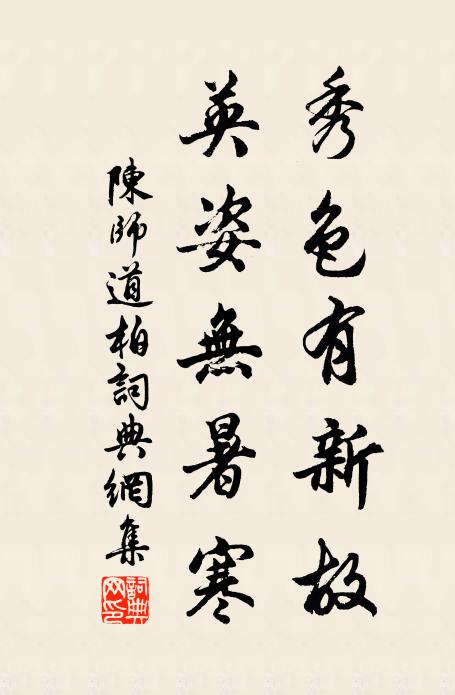 秀色有新故
英姿無暑寒
陳師道柏詞典網集
詞典网印